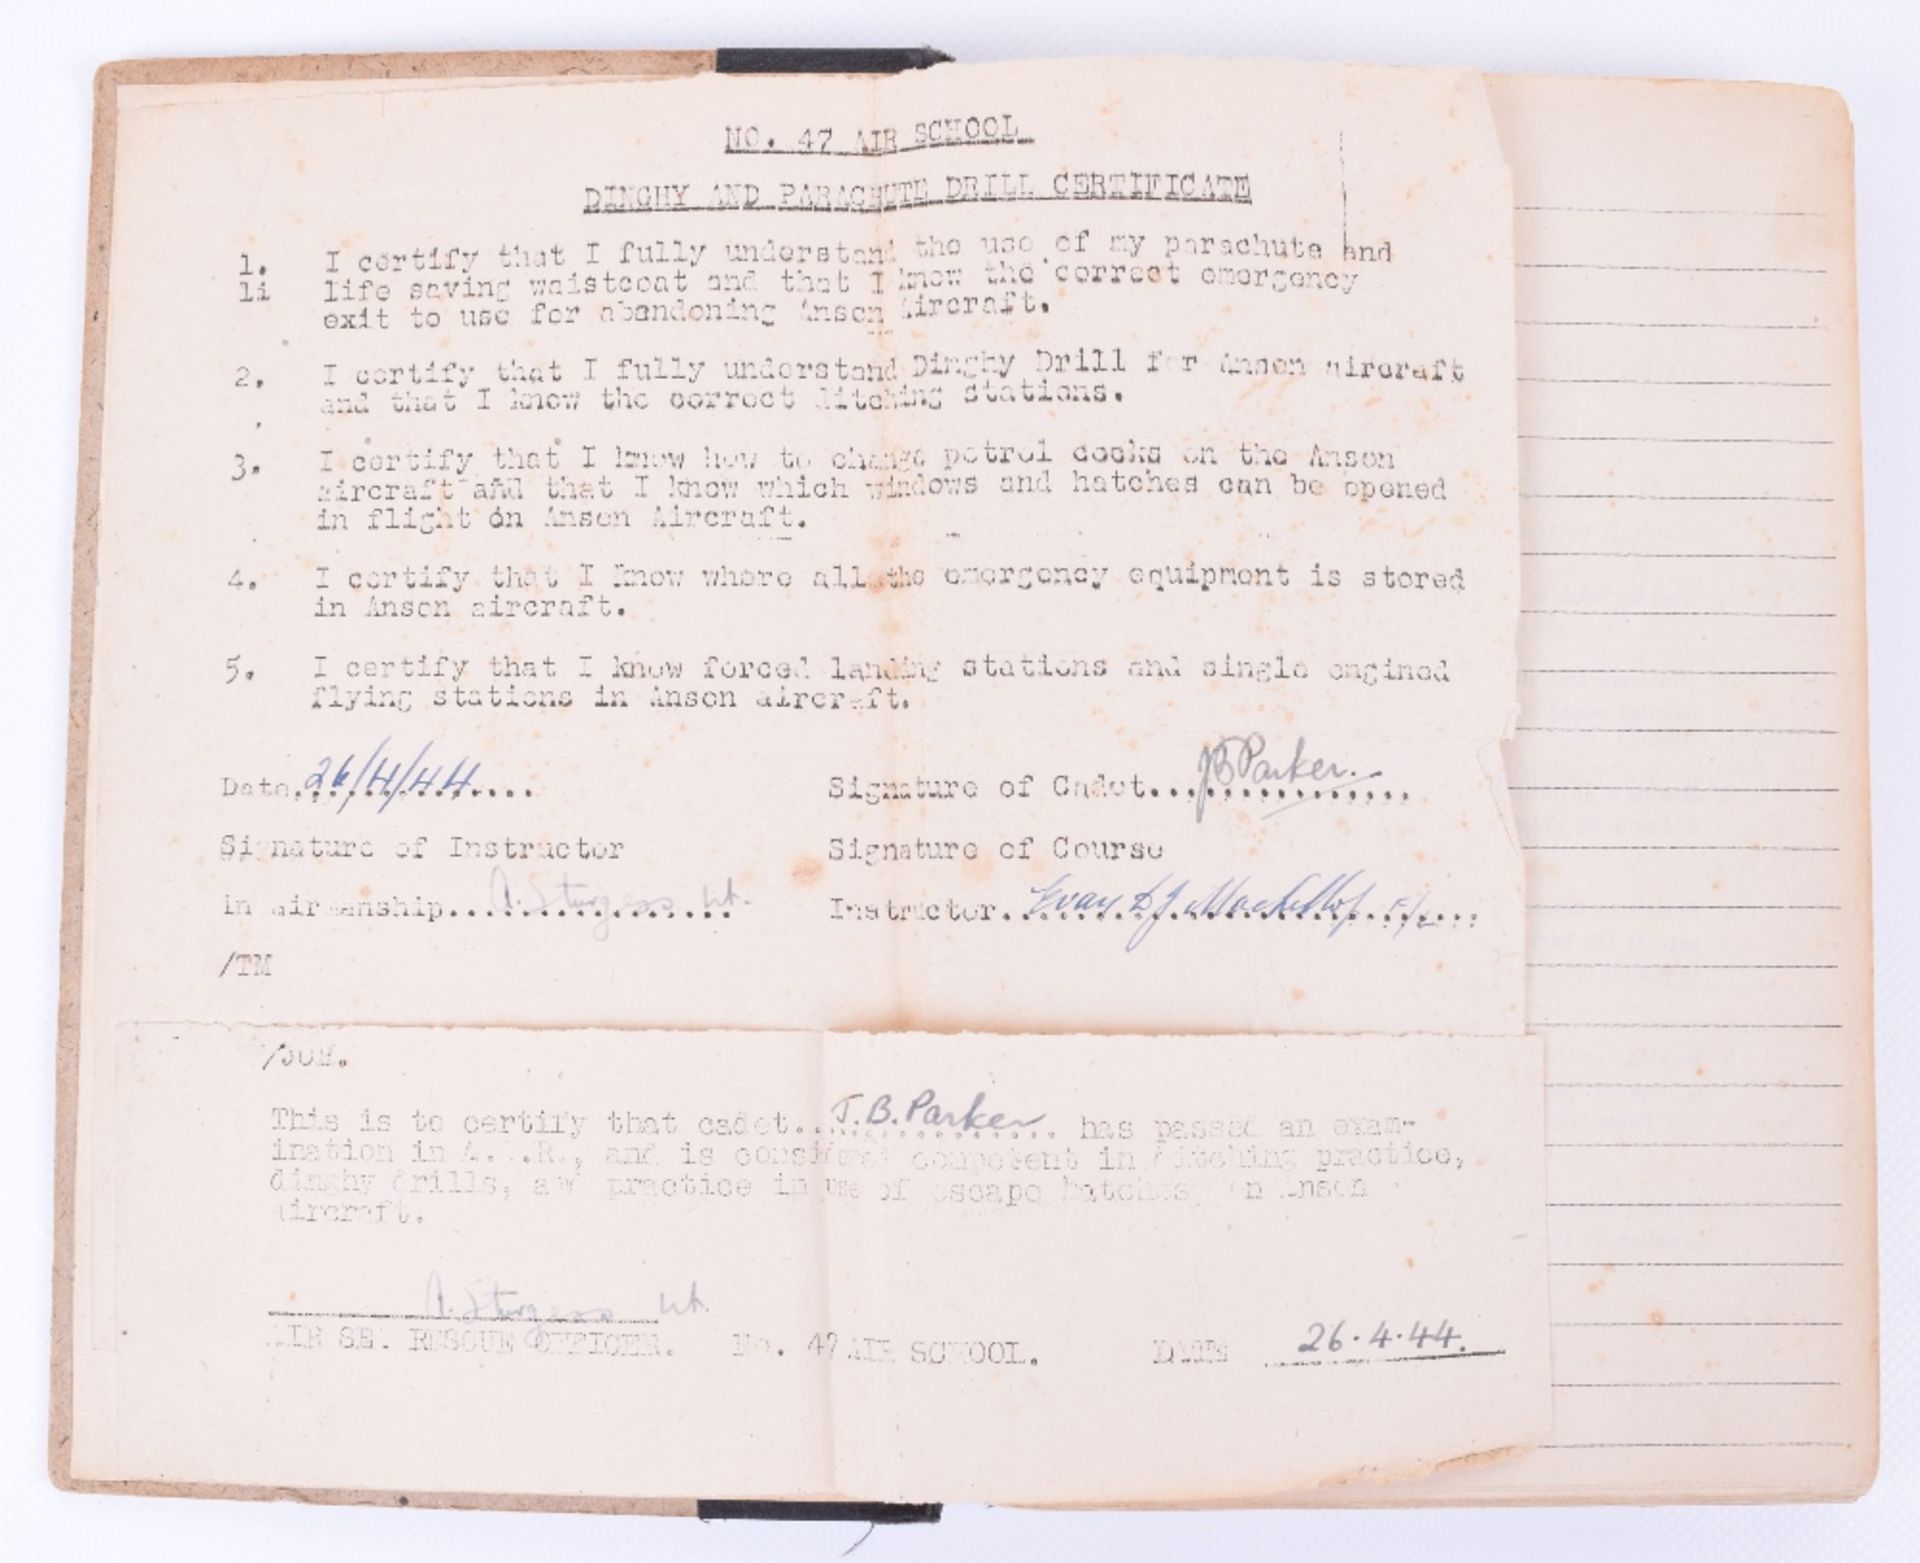 NO. 47 AIR SCHOOL
DINGHY AND PARACHUTE DRILL CERTIFICATE
1. I certify that I fully understand the use of my parachute and
li life saving waistcoat and that I know the correct emergency
exit to use for abandoning Anson Aircraft.
2. I certify that I fully understand Dinghy Drill for Anson aircraft
and that I know the correct ditching stations.
3. I certify that I know how to change petrol cocks on the Anson
aircraft and that I know which windows and hatches can be opened
in flight on Anson Aircraft.
4. I certify that I know where all the emergency equipment is stored
in Anson aircraft.
5. I certify that I know forced landing stations and single engined
flying stations in Anson aircraft.
Date 26/4/44 Signature of Cadet JB Parker.
Signature of Instructor Signature of Course
in airmanship A. Sturgess Lt. Instructor
/TM
/JUM.
This is to certify that cadet J.B. Parker has passed an exam-
ination in and is considered competent in ditching practice,
dinghy drills, and practice in use of escape hatches on Anson
aircraft.
A. Sturgess Lt.
AIR SEA RESCUE OFFICER. No. 47 AIR SCHOOL. DATE 26.4.44.